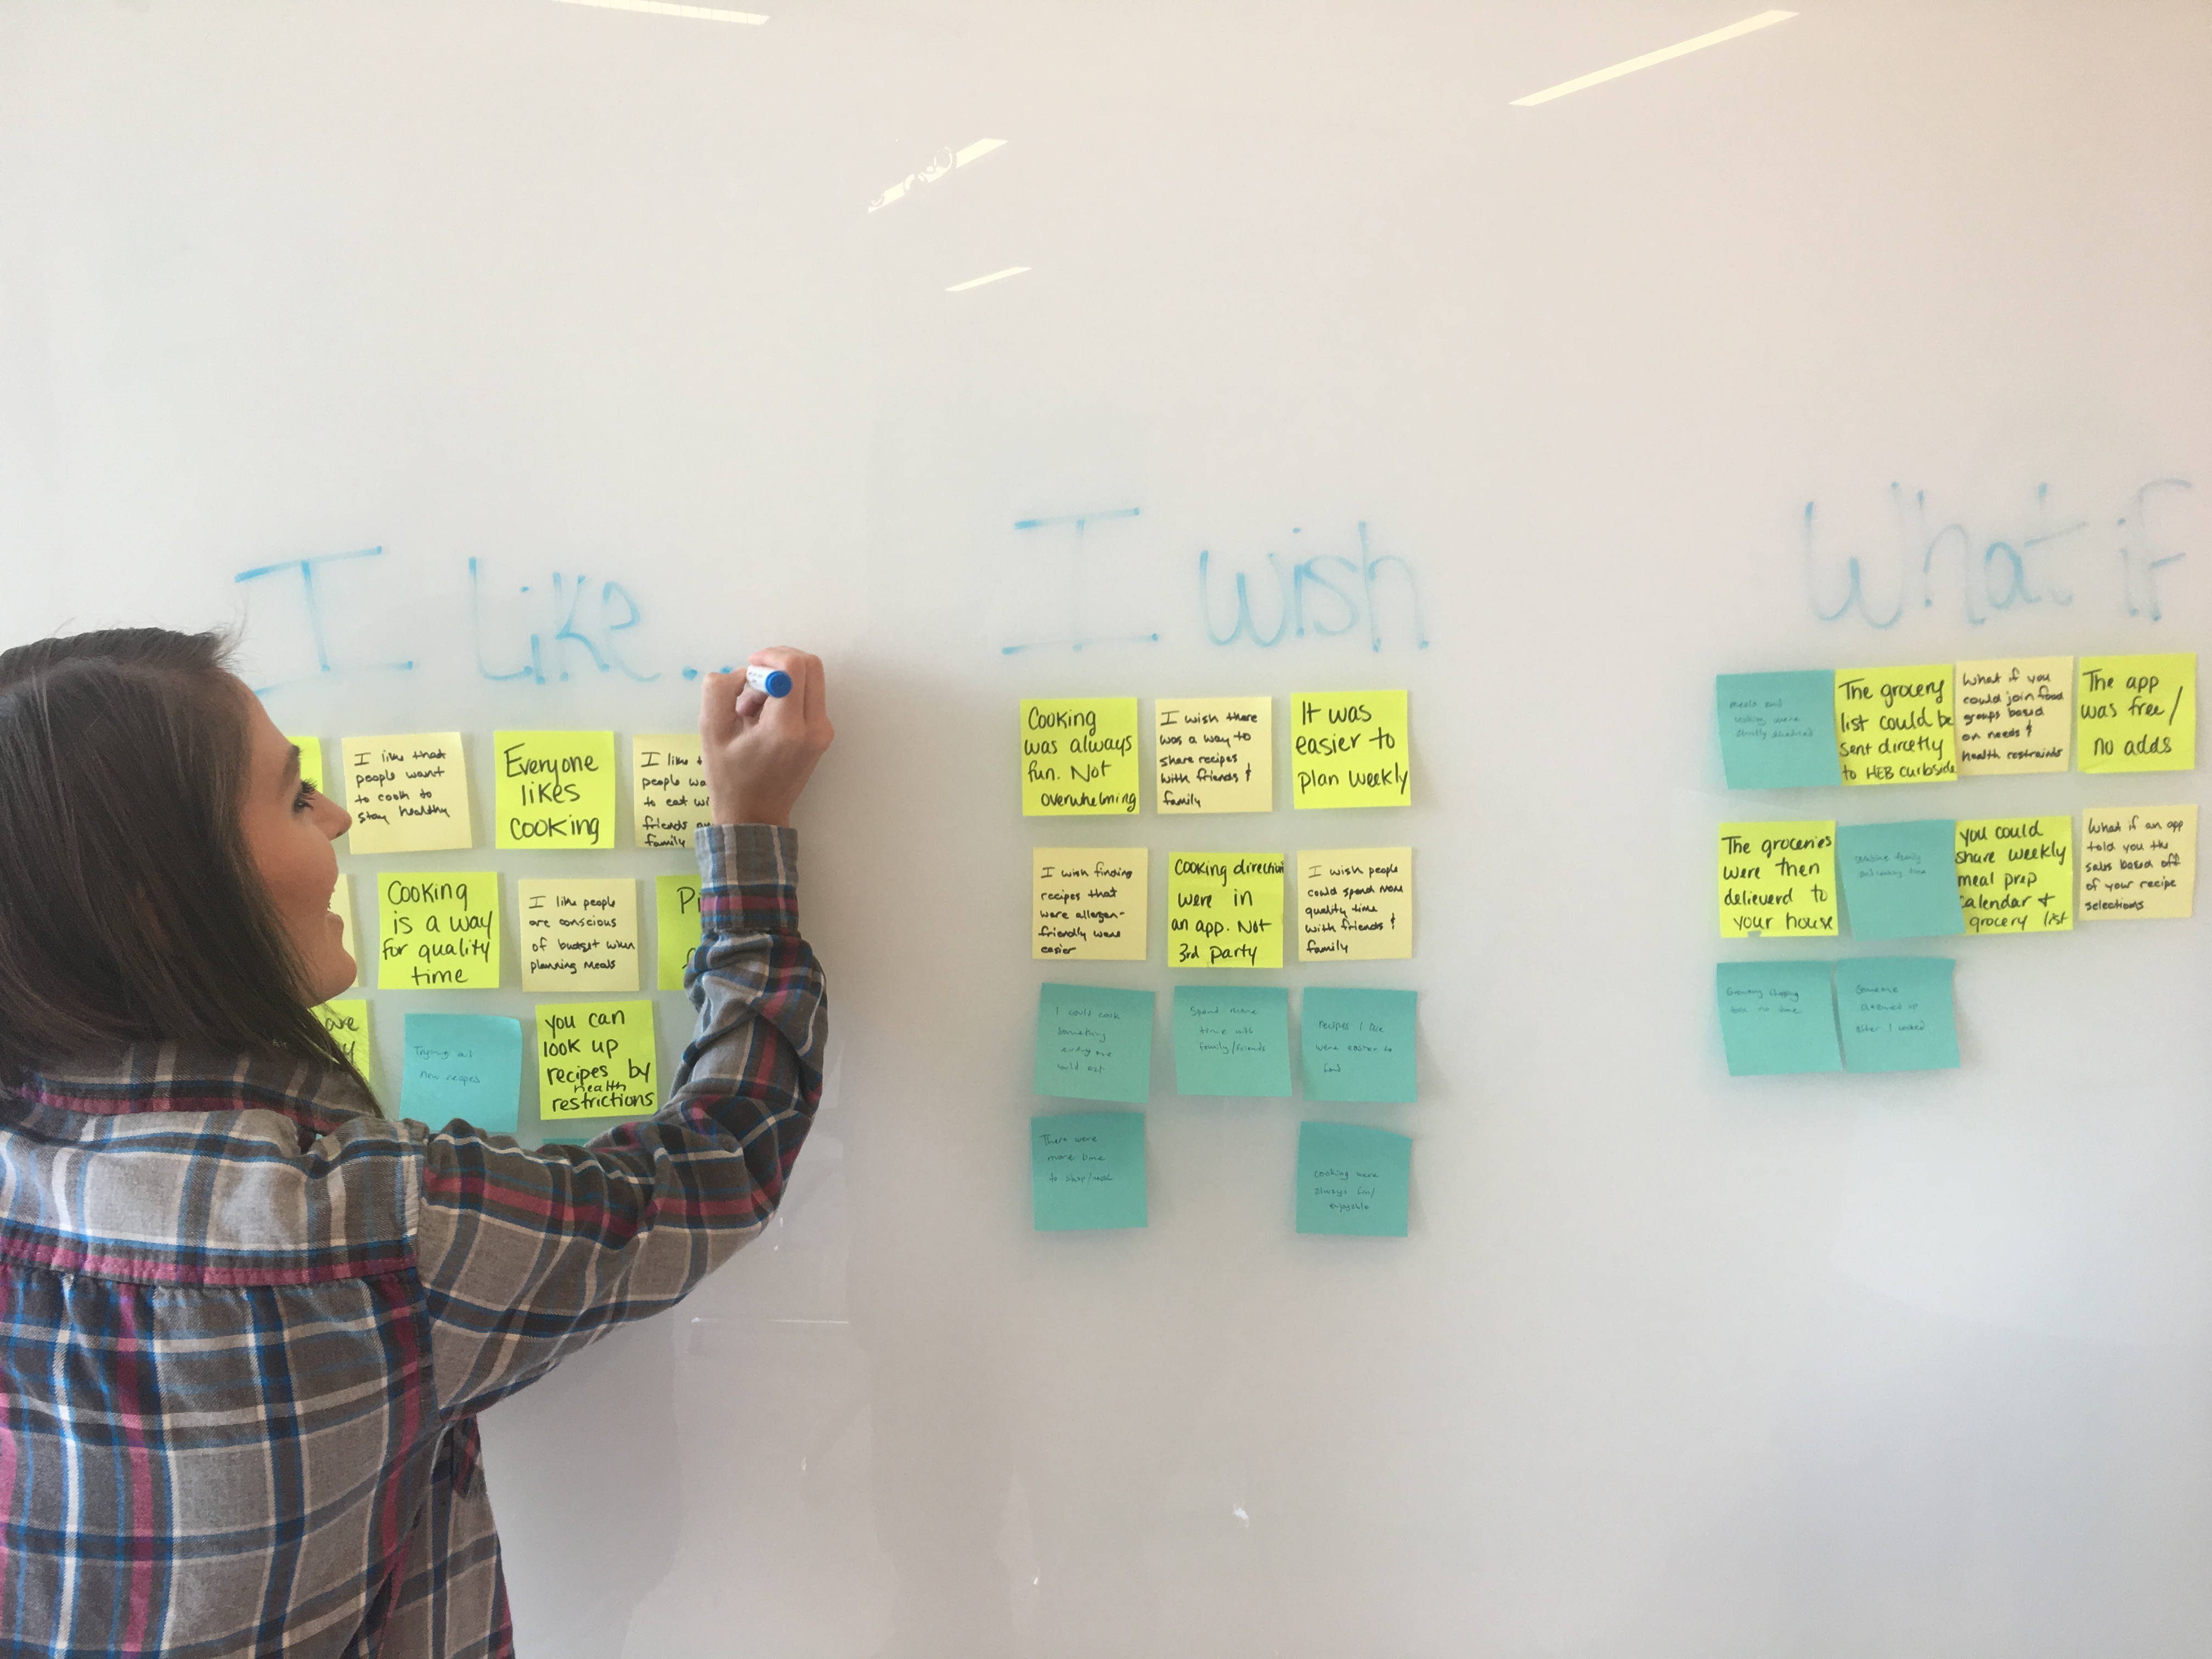 I Like...
I wish
What if
I like that
people want
to cook to
stay healthy
Everyone
likes
cooking
I like
people
to eat
friends
family
Cooking
is a way
for quality
time
I like people
are conscious
of budget when
planning meals
Trying out
new recipes
you can
look up
recipes by
health
restrictions
Cooking
was always
fun. Not
overwhelming
I wish there
was a way to
share recipes
with friends &
family
It was
easier to
plan weekly
I wish finding
recipes that
were allergen-
friendly were
easier
Cooking
were in
an app. Not
3rd party
I wish people
could spend more
quality time
with friends &
family
I could cook
something
everyone
would eat
Spend more
time with
family/friends
recipes I like
were easier to
find
There were
more time
to shop/cook
cooking were
always fun/
enjoyable
meals and
cooking were
The grocery
list could be
sent dircetly
to HEB curbside
What if you
could join food
groups based
on needs &
health restraints
The app
was free/
no adds
The groceries
were then
delieverd to
your house
combine family
and cooking time
you could
share weekly
meal prep
calendar +
grocery list
What if an app
told you the
sales based off
of your recipe
selections
Grocery shopping
took no time
Someone
cleaned up
after I cooked